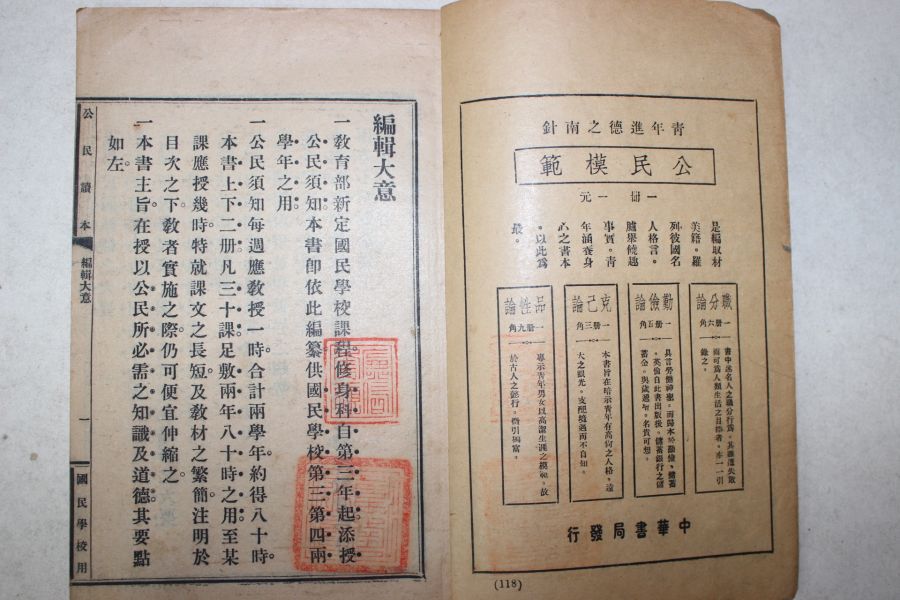 青年進德之南針
公民模範
一冊 一元
是編取材
美籍。羅
列彼國名
人格言。
臚舉饒趣
事實。青
年涵養身
心之書本
。以此爲
最。
職分論
一冊六角
書中述名人之職分行爲。其雖遭失敗
而可爲人類生活之目標者。亦一一引
錄之。
勤儉論
一冊五角
具言勞働神聖。而歸本於勤儉、儲蓄
。英倫自此書出版後。儲蓄銀行之儲
蓄金。與歲遞增。名貴可想。
克己論
一冊三角
本書旨在暗示青年有高尚之人格、遠
大之眼光。支配境遇而不自知。
品性論
一冊九角
專示青年男女以高潔生涯之模範。故
於古人之懿行。徵引獨富。
中華書局發行
(118)
編輯大意
一敎育部新定國民學校課程修身科自第三年起添授
公民須知本書卽依此編纂供國民學校第三第四兩
學年之用
一公民須知每週應敎授一時合計兩學年約得八十時。
本書上下二册凡三十課足敷兩年八十時之用至某
課應授幾時特就課文之長短及敎材之繁簡注明於
目次之下敎者實施之際仍可便宜伸縮之
一本書主旨在授以公民所必需之知識及道德其要點
如左。
公民讀本
編輯大意
一
國民學校用